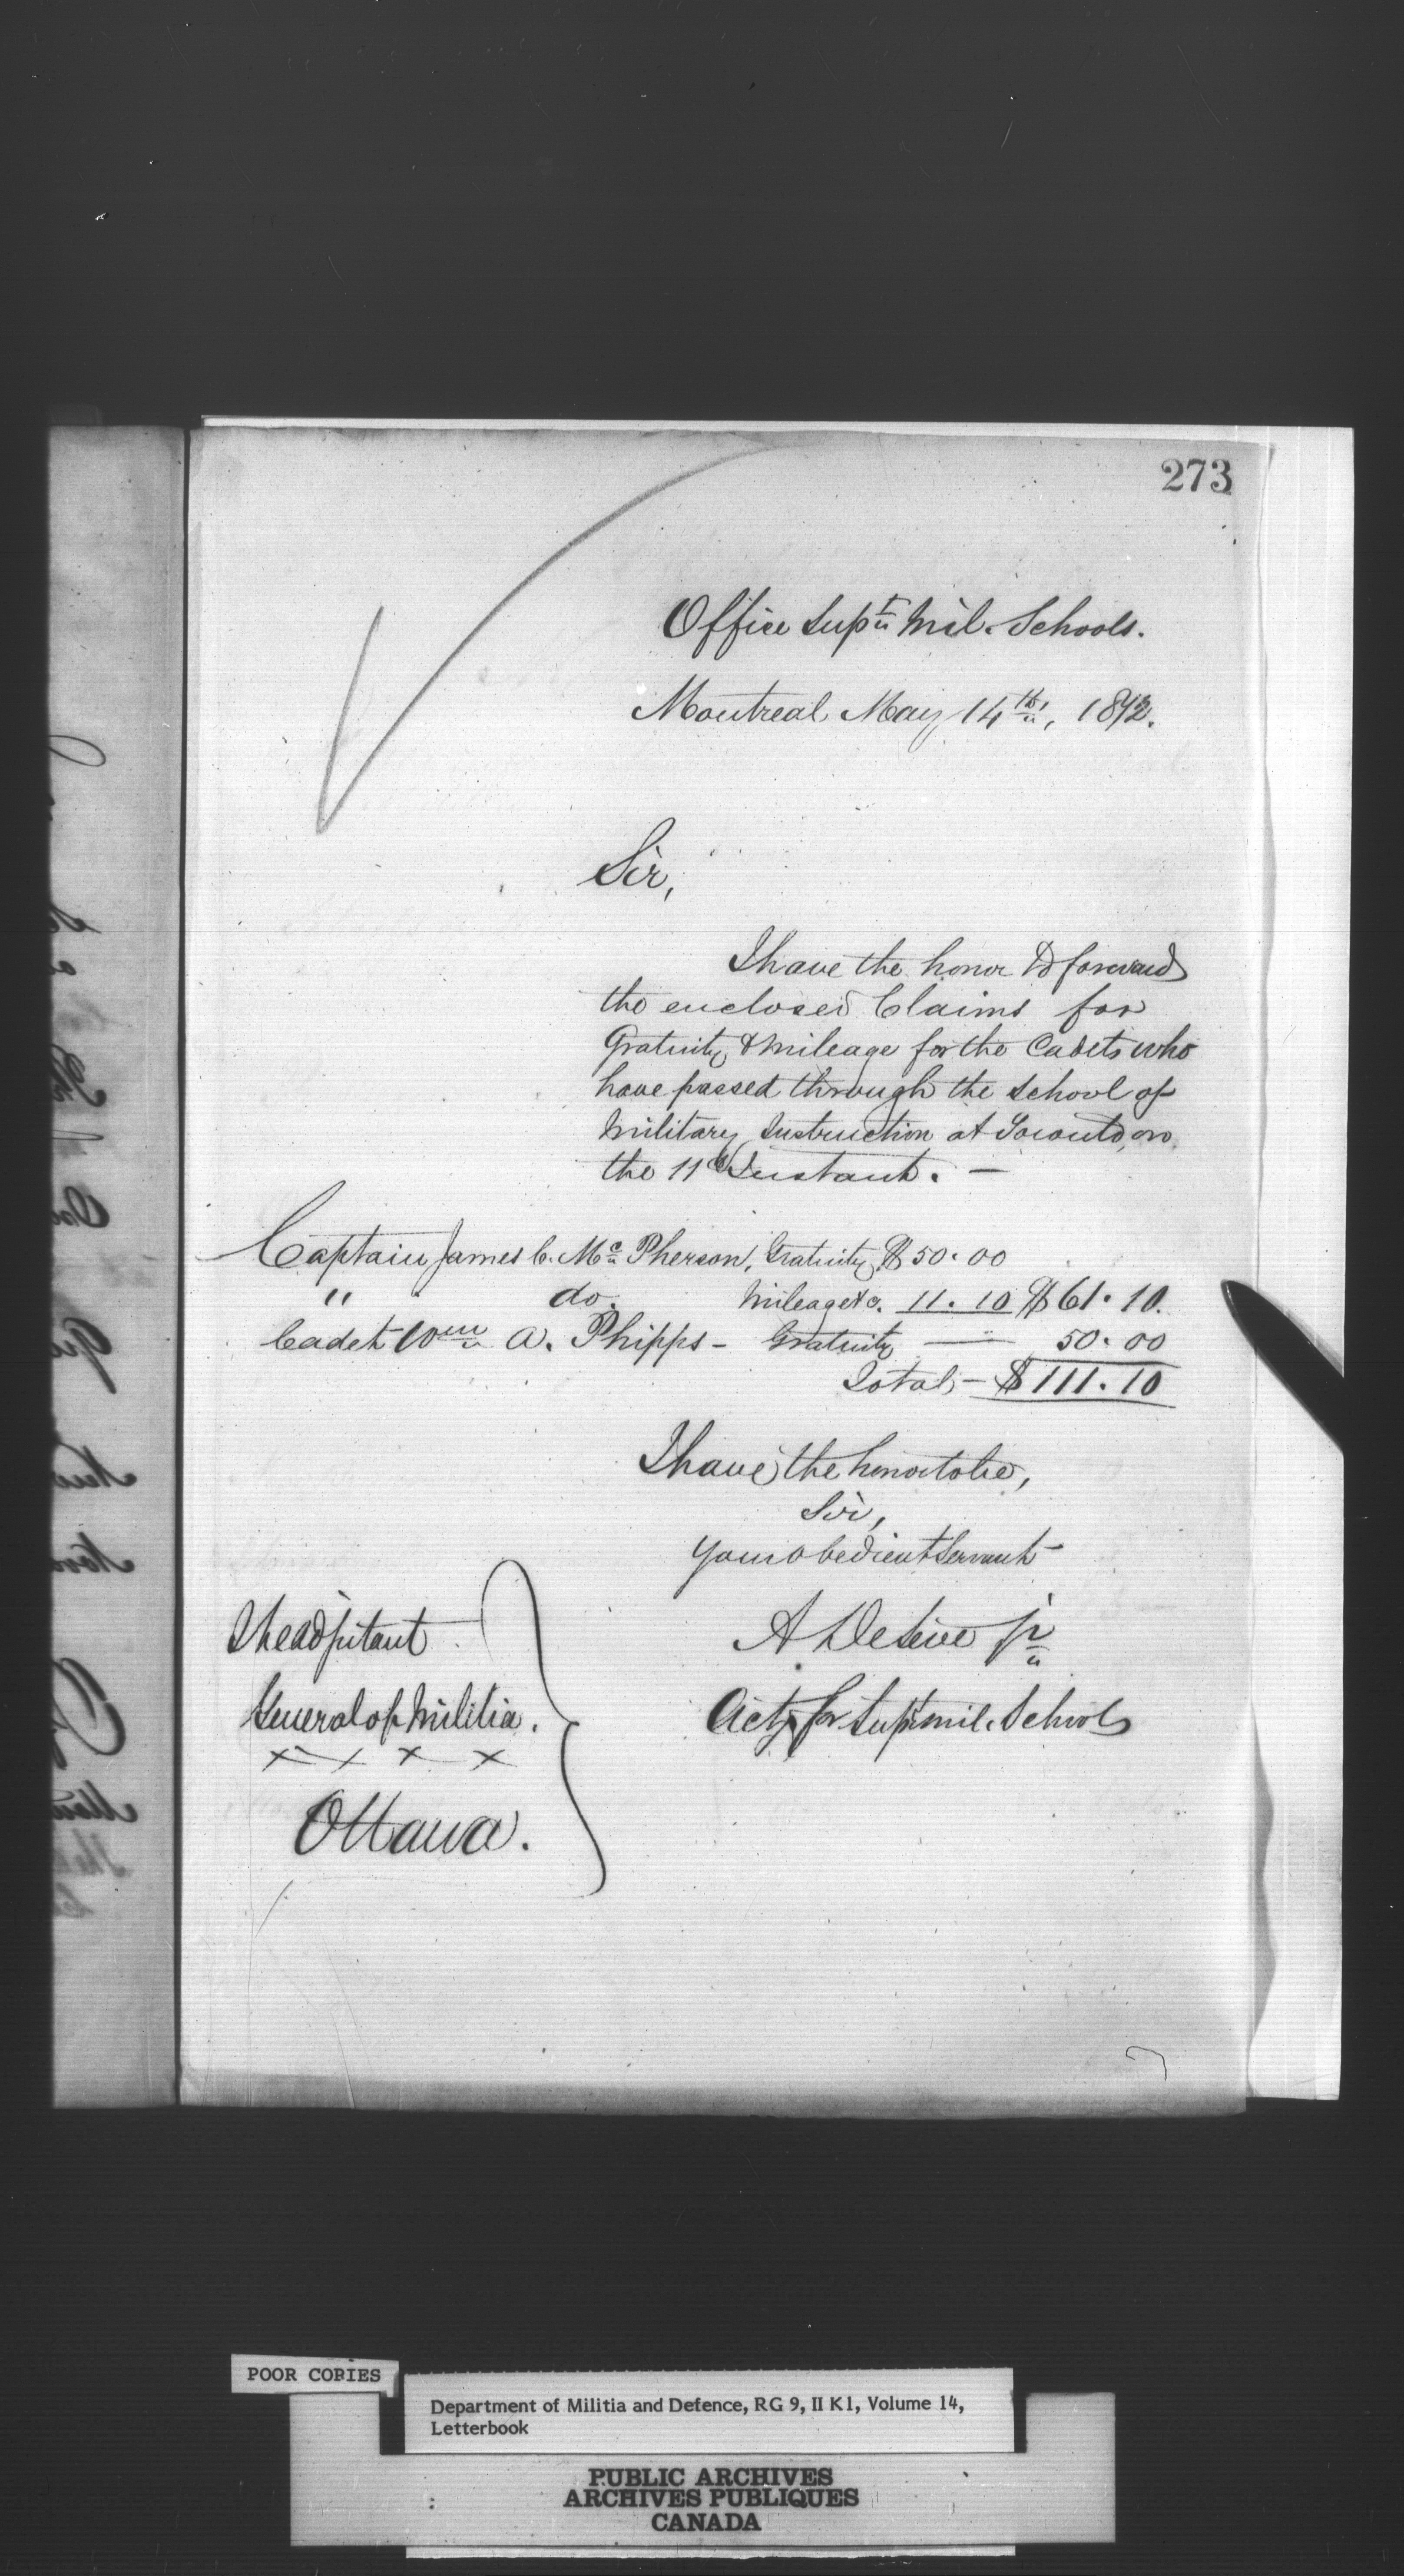 273
Office Supt Mil. Schools.
Montreal May 14th, 1872.
Sir,
I have the honor to forward
the enclosed Claims for
Gratuity & Mileage for the Cadets who
have passed through the School of
Military Instruction at Toronto, on
the 11th Instant. —
Captain James C. Mc Pherson, Gratuity $50.00
" do. Mileage &c. 11.10 $61.10.
Cadet Wm A. Phipps - Gratuity — " — 50.00
Total - $111.10
I have the honor to be,
Sir,
Your obedient Servant
A. DeLieve jr
Actg for Supt Mil. Schools
The Adjutant
General of Militia.
x x x x
Ottawa.
POOR COPIES
Department of Militia and Defence, RG 9, II K1, Volume 14,
Letterbook
PUBLIC ARCHIVES
ARCHIVES PUBLIQUES
CANADA